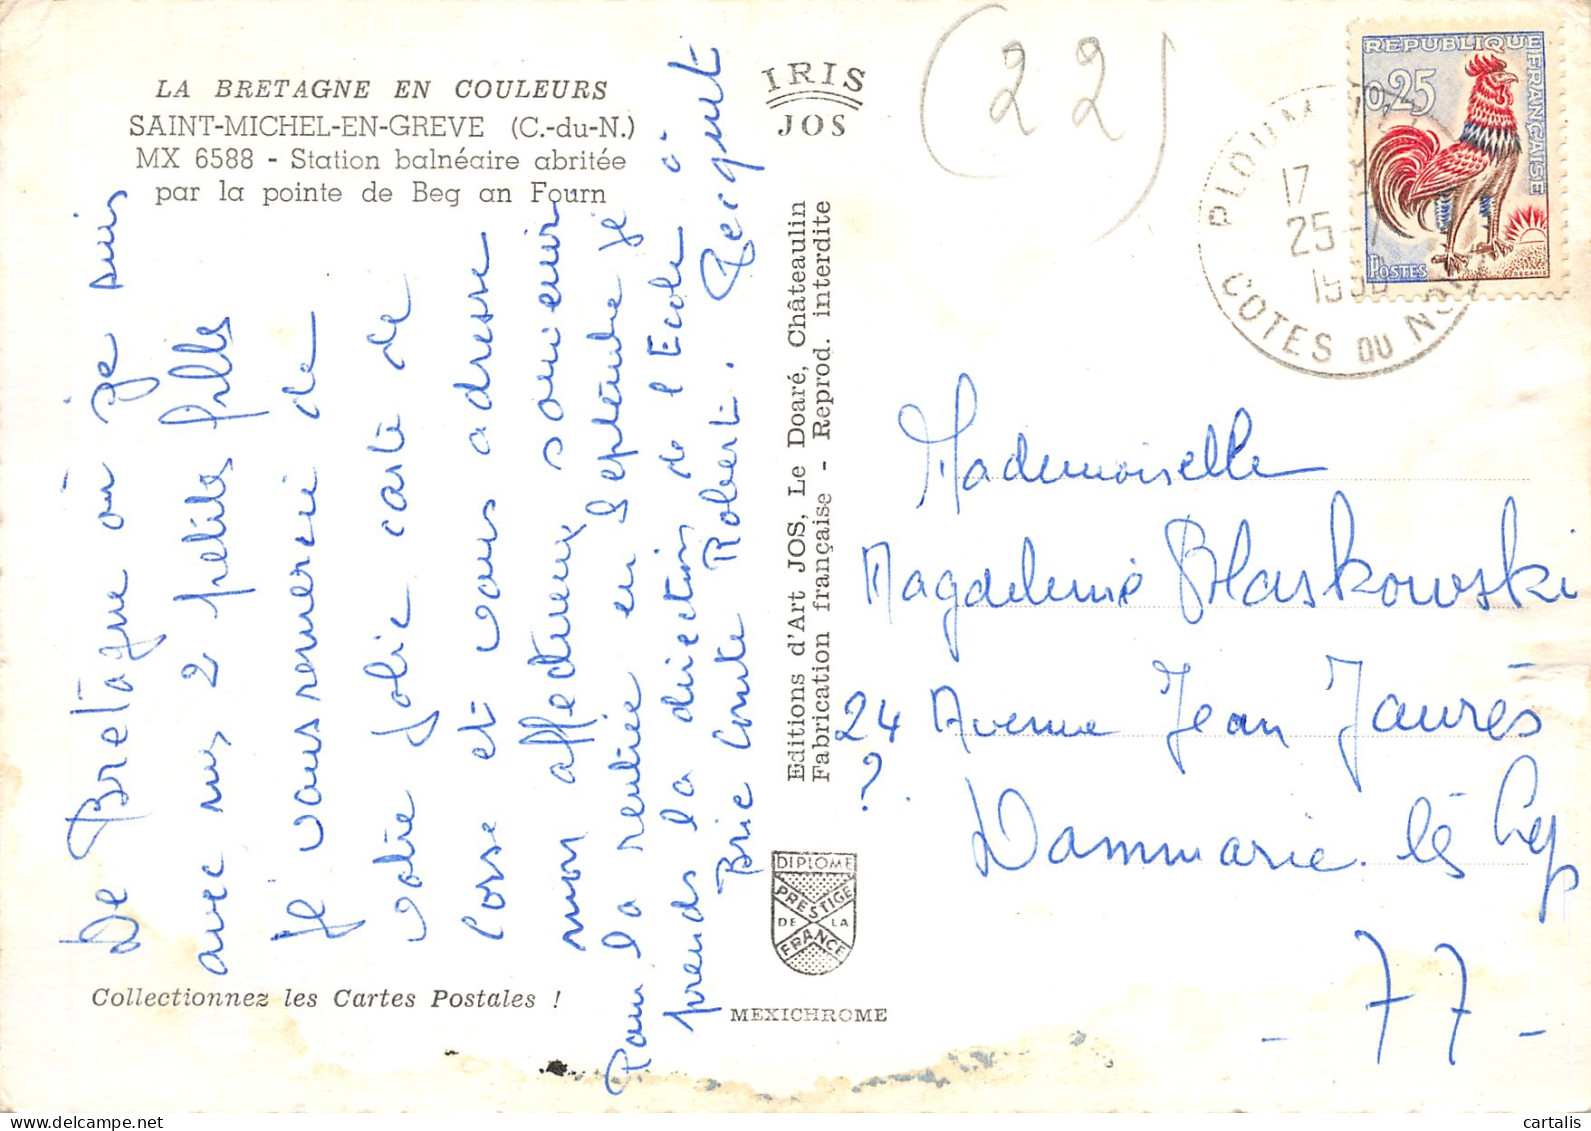 LA BRETAGNE EN COULEURS
SAINT-MICHEL-EN-GREVE (C.-du-N.)
MX 6588 - Station balnéaire abritée
par la pointe de Beg an Fourn
De Bretagne où je suis
avec mes 2 petites filles
je vous remercie de
votre jolie carte de
Corse et vous adresse
mon affectueux souvenir
Pour la rentrée en Septembre je
prends la direction de l'Ecole à
Brie Comte Robert.
Collectionnez les Cartes Postales !
IRIS
JOS
Editions d'Art JOS, Le Doaré, Châteaulin
Fabrication française - Reprod. interdite
DIPLOME
PRESTIGE
DE LA
FRANCE
MEXICHROME
(22)
REPUBLIQUE FRANÇAISE
0,25
POSTES
DECARIS
17
25-7
COTES DU NORD
Mademoiselle
Magdeleine Blaskowski
24 Avenue Jean Jaurès
?
Dammarie-lès-Lys
- 77 -
cartalis